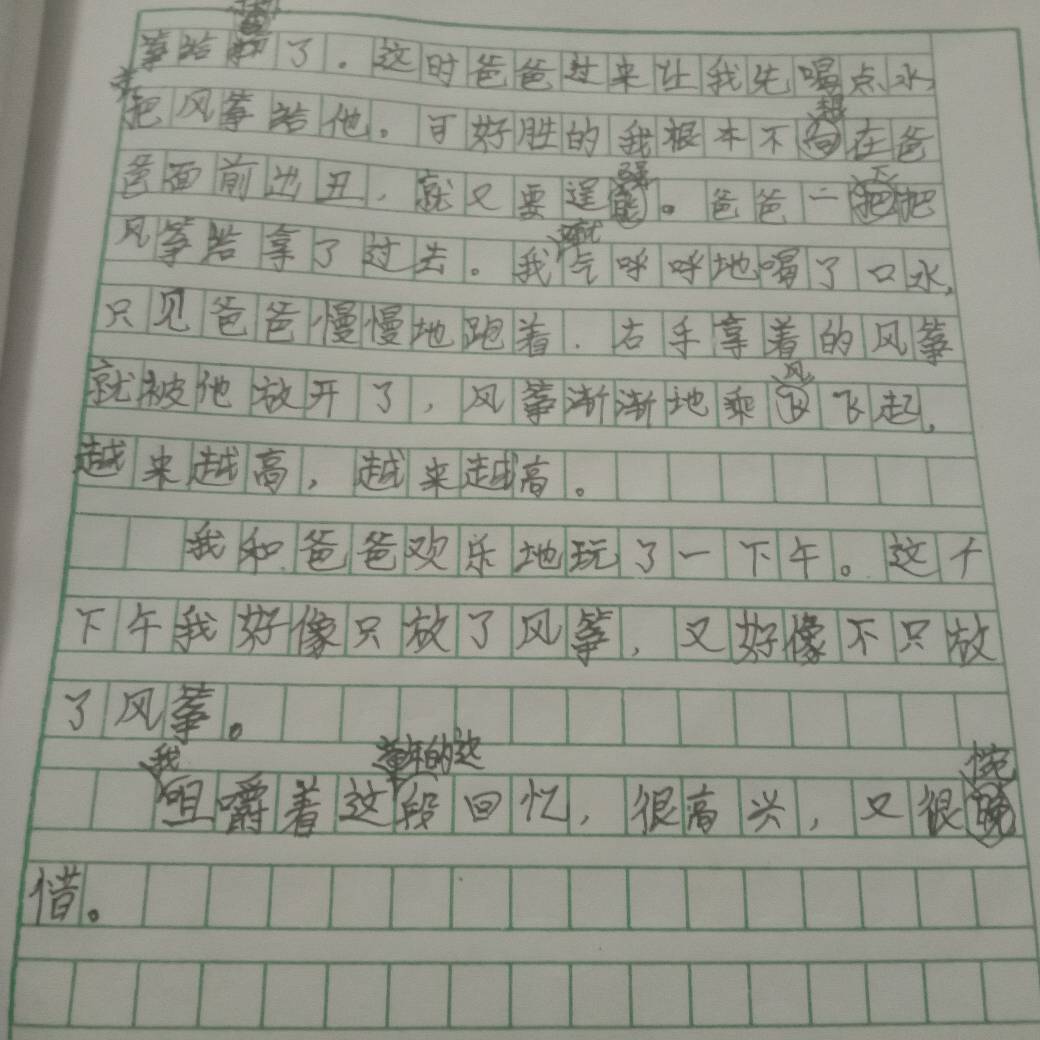 筝给了。这时爸爸过来让我先喝点水,
来把风筝给他。可好胜的我根本不想在爸
爸面前出丑,就又要逞强。爸爸一下把
风筝给拿了过去。我就气呼呼地喝了口水,
只见爸爸慢慢地跑着.右手拿着的风筝
就被他放开了,风筝渐渐地乘风飞起,
越来越高,越来越高。
我和爸爸欢乐地玩了一下午。这个
下午我好像只放了风筝,又好像不只放
了风筝。
我咀嚼着童年的这段回忆,很高兴,又很惋
惜。